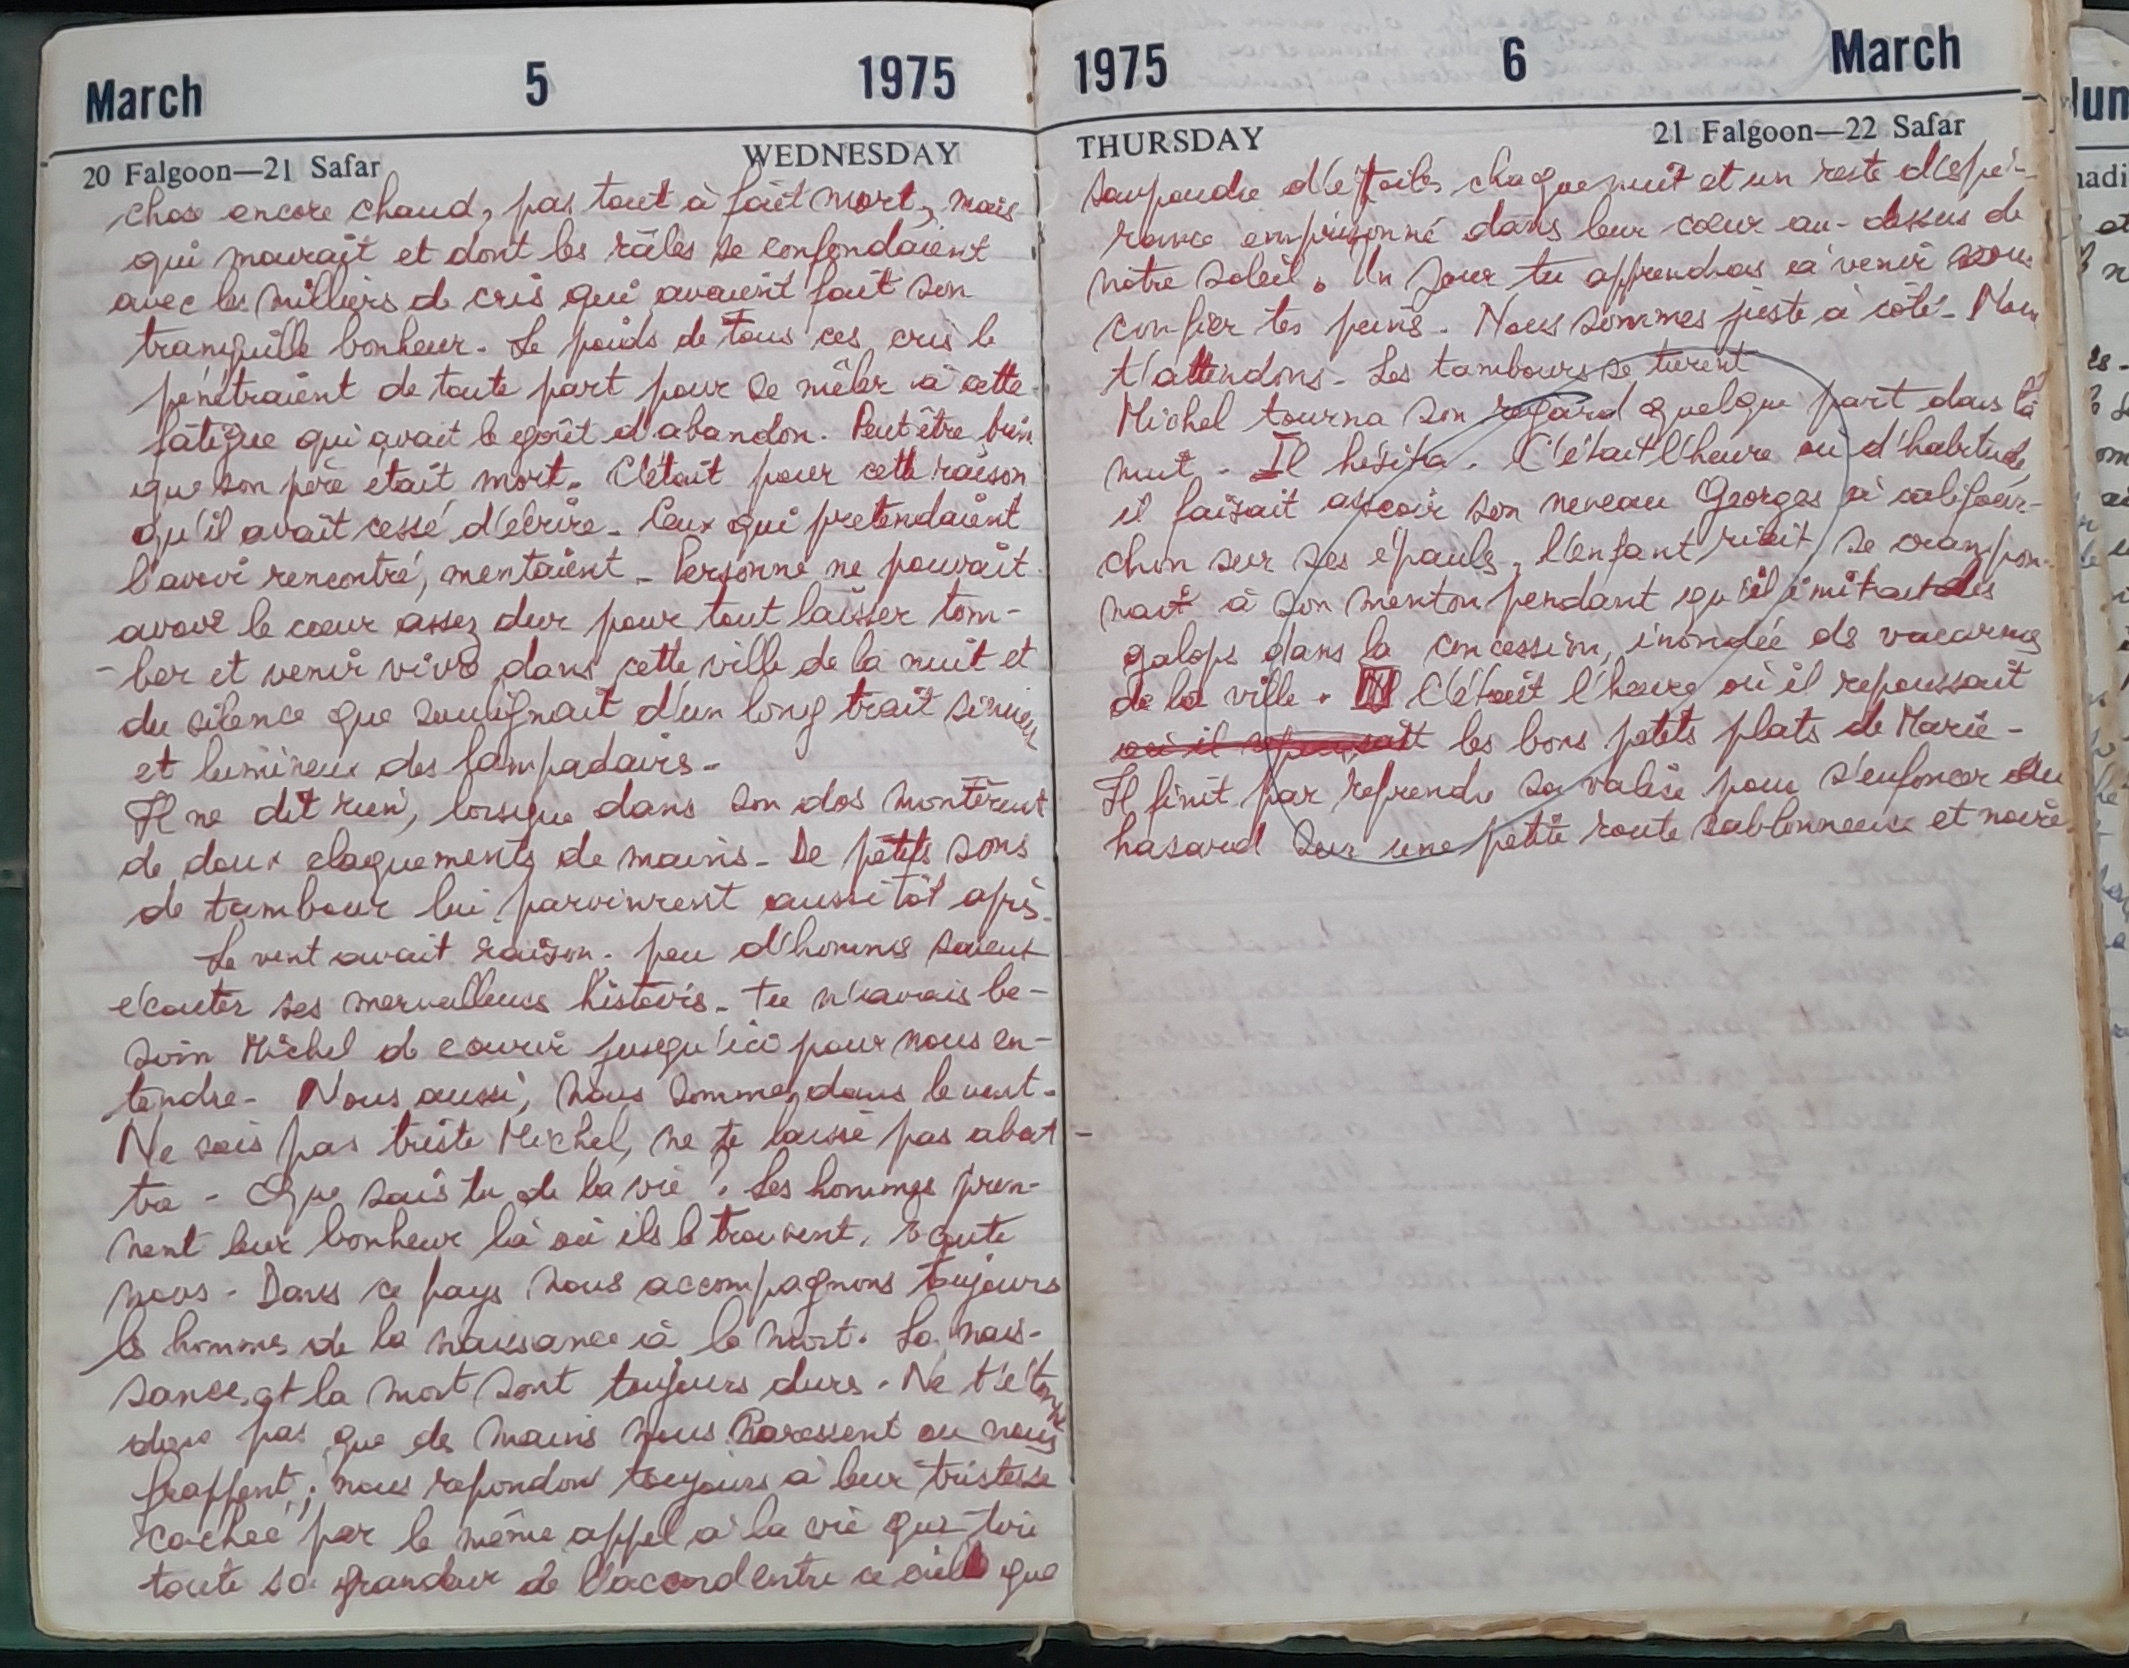 March 5 1975
20 Falgoon—21 Safar WEDNESDAY
chose encore chaud, pas tout à fait mort, mais
qui mourait et dont les râles se confondaient
avec les milliers de cris qui avaient fait son
tranquille bonheur. Le poids de tous ces cris le
pénétraient de toute part pour se mêler à cette
fatigue qui avait le goût d'abandon. Peut être bien
que son père était mort. C'était pour cette raison
qu'il avait cessé d'écrire. Ceux qui pretendaient
l'avoir rencontré, mentaient. Personne ne pouvait
avoir le cœur assez dur pour tout laisser tom-
-ber et venir vivre dans cette ville de la nuit et
du silence que soulignait d'un long trait sinueux
et lumineux des lampadaires.
Il ne dit rien, lorsque dans son dos montèrent
de doux claquements de mains. De petits sons
de tambour lui parvinrent aussitôt après.
Le vent avait raison. peu d'hommes savent
écouter ses merveilleuses histoires. tu n'avais be-
soin Michel de courir jusqu'ici pour nous en-
tendre. Nous aussi, nous sommes dans le vent.
Ne sois pas triste Michel, ne te laisse pas abat-
tre. Que sais tu de la vie ?. Les hommes pren-
nent leur bonheur là où ils le trouvent. Ecoute
nous. Dans ce pays nous accompagnons toujours
les hommes de la naissance à la mort. La nais-
sance et la mort sont toujours dures. Ne t'étonne
donc pas que des mains nous caressent ou nous
frappent ; nous repondons toujours à leur tristesse
cachée par le même appel à la vie qui tire
toute sa grandeur de l'accord entre ce ciel que
1975 6 March
THURSDAY 21 Falgoon—22 Safar
saupoudre d'étoiles chaque nuit et un reste d'espé-
rance emprisonné dans leur cœur au-dessus de
notre soleil. Un jour tu apprendras à venir nous
confier tes peines. Nous sommes juste à côté. Nous
t'attendons. Les tambours se turent
Michel tourna son regard quelque part dans la
nuit. Il hésita. C'était l'heure où d'habitude,
il faisait asseoir son neveau Georges à califour-
chon sur ses épaules, l'enfant riait, se crampon-
nait à son menton pendant qu'il imitait des
galops dans la concession, inondée de vacarmes
de la ville. C'était l'heure où il repoussait
où il repoussait les bons petits plats de Marie.
Il finit par reprendre sa valise pour s'enfoncer au
hasard sur une petite route sablonneuse et noire
Jun